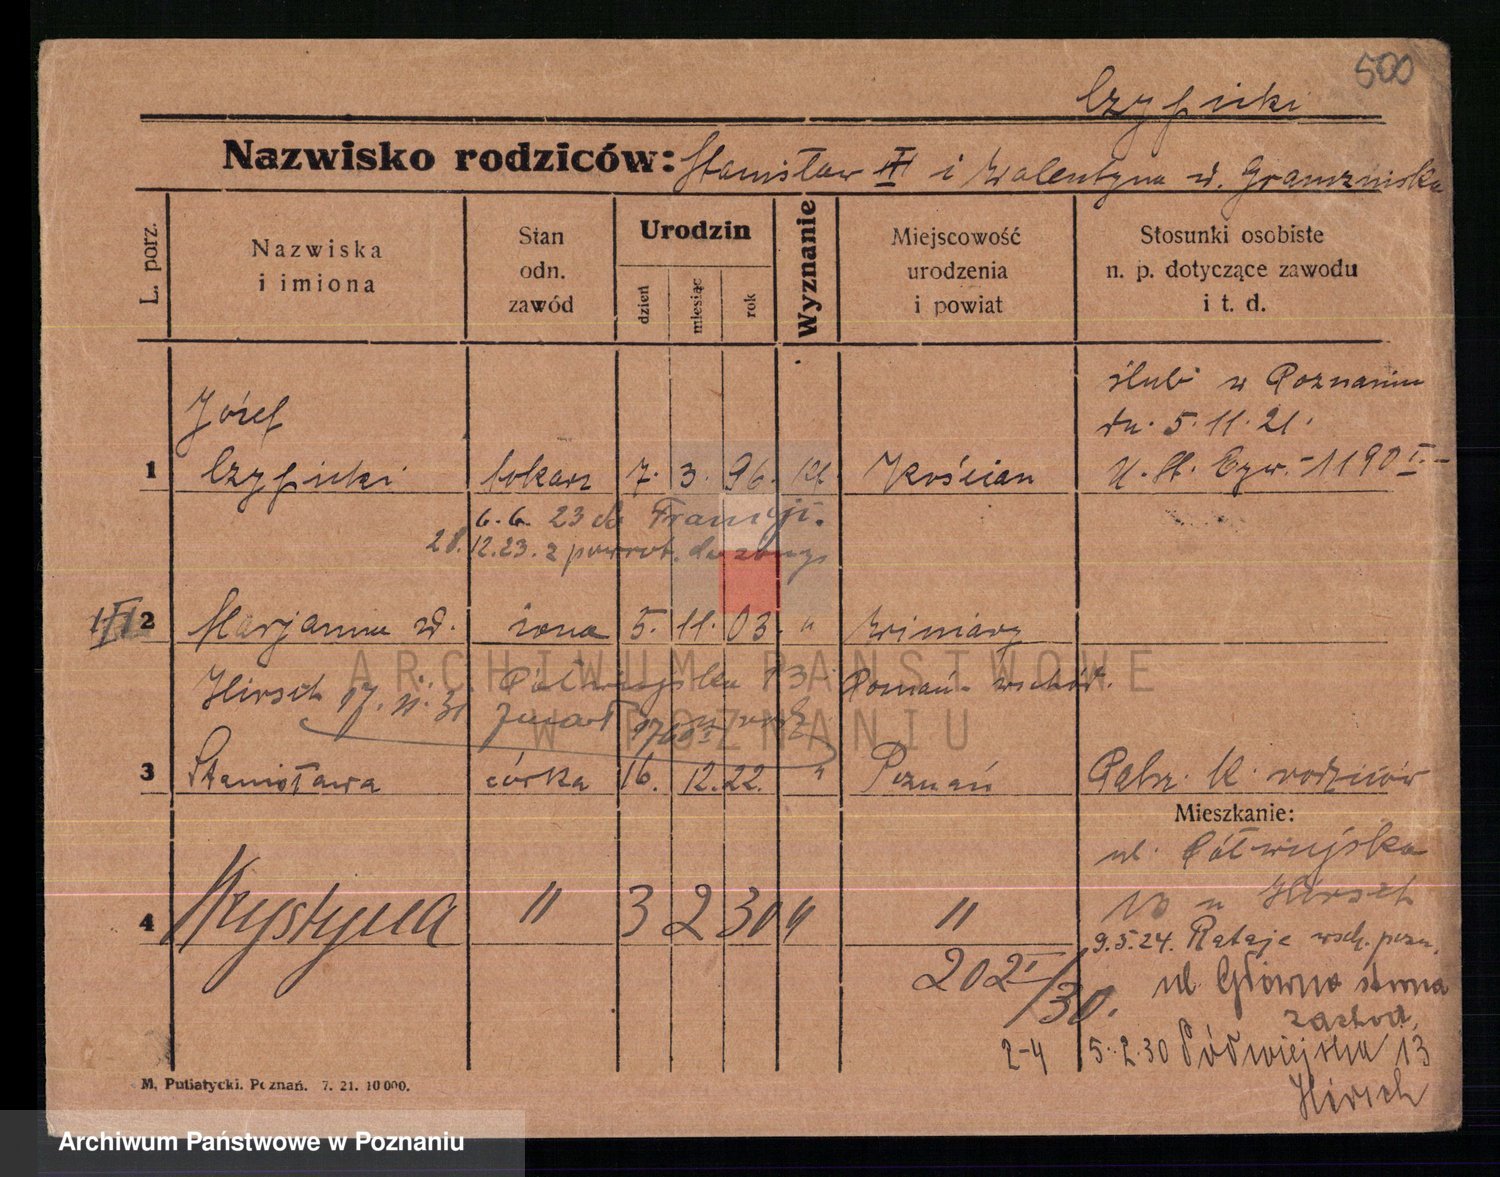 500
Czypicki
Nazwisko rodziców: Stanisław II i Walentyna z d. Gramzińska
L. porz.
Nazwiska i imiona
Stan odn. zawód
Urodzin
dzień miesiąc rok
Wyznanie
Miejscowość urodzenia i powiat
Stosunki osobiste n. p. dotyczące zawodu i t. d.
ślub w Poznaniu
dn. 5.11.21.
Józef
1 Czypicki tokarz 7. 3. 96. kat Kościan U. St. Cyw. - 1190 I. -
6.6.23 do Francji.
28.12.23. z powrot. do
2 Marjanna zd. żona 5. 11. 03. " Winiary
Hirsch 17. 31 Półwiejska 13 Poznań - wschód.
3 Stanisława córka 16. 12. 22. " Poznań Pobr. k. rodziców
Mieszkanie:
ul. Półwiejska
4 Krystyna " 3 2 30 " "
10 u Hirsch
9.5.24. Rataje wsch. pozn.
202 I/30. ul. Główna strona
zachod.
2-4 5.2.30 Półwiejska 13
Hirsch
M. Putiatycki. Poznań. 7. 21. 10 000.
ARCHIWUM PAŃSTWOWE
W POZNANIU
Archiwum Państwowe w Poznaniu